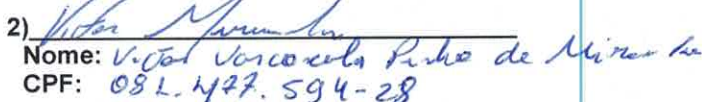 2) Victor
Nome: Victor Vasconcelos Pinho de Miranda
CPF: 081.477.594-28